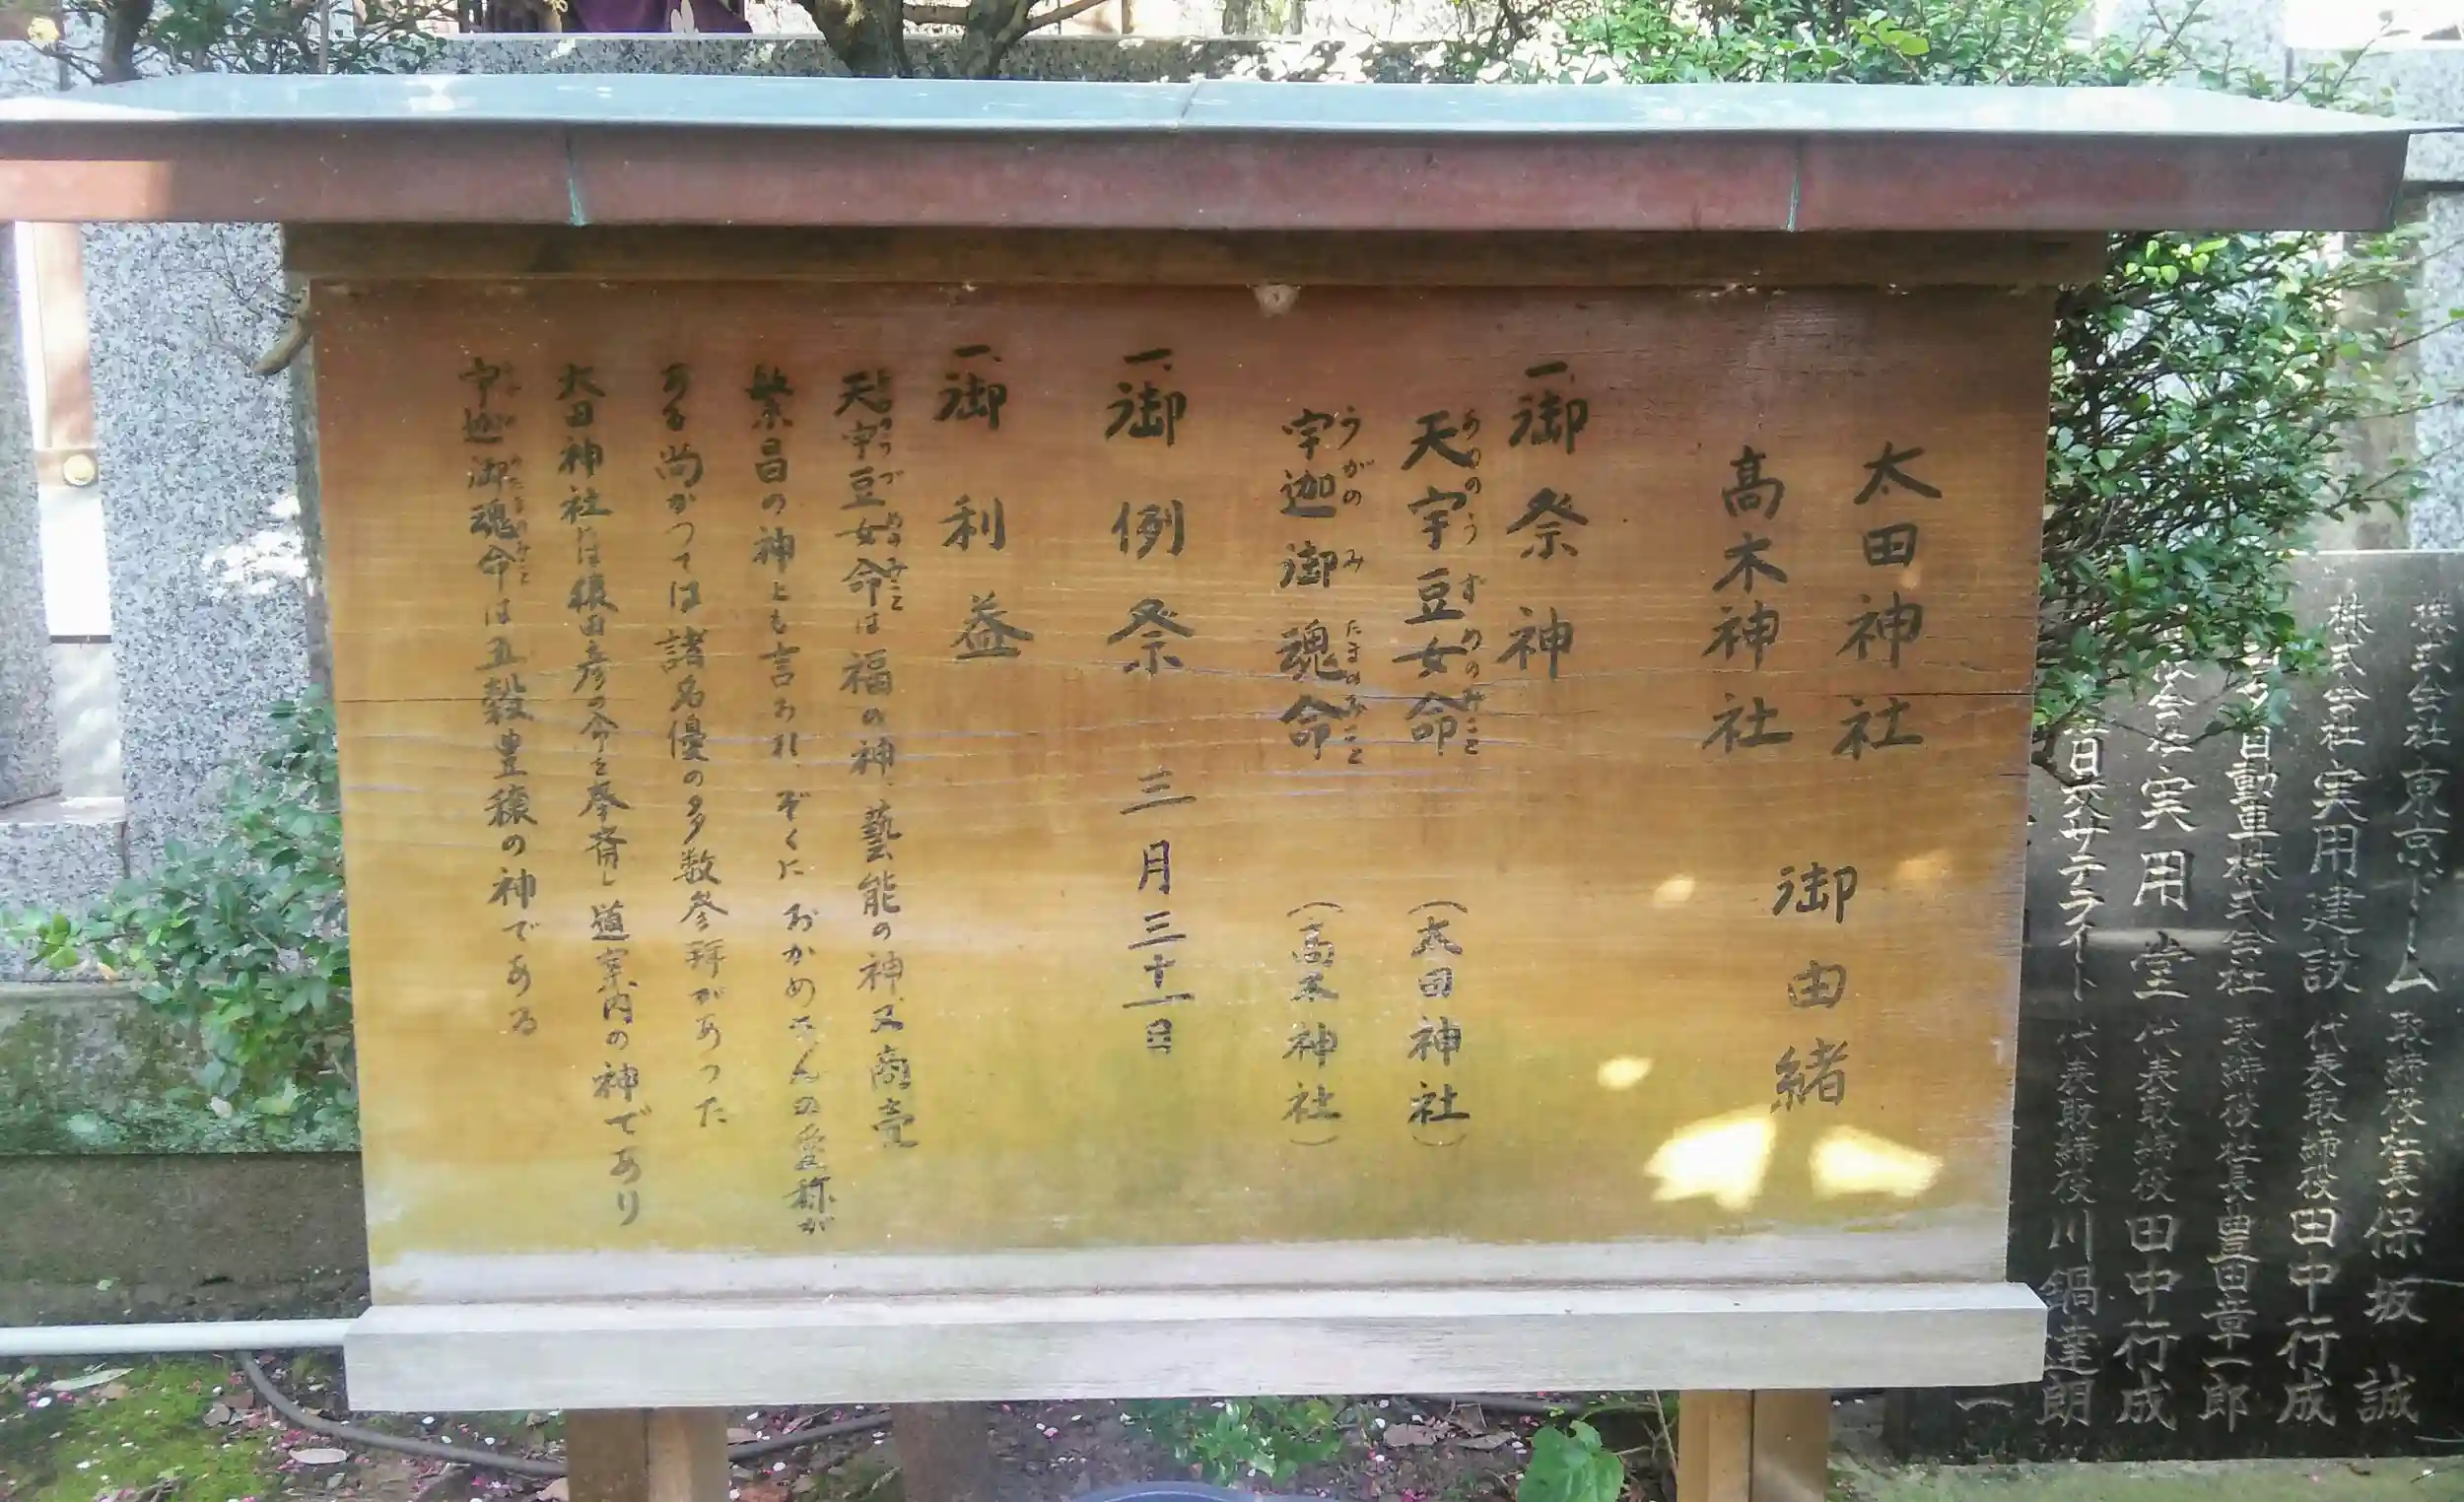 太田神社
高木神社
御由緒
一、御祭神
天宇豆女命 (太田神社)
あめのうずめのみこと
宇迦御魂命 (高木神社)
うがのみたまのみこと
一、御例祭 三月三十一日
一、御利益
天宇豆女命は福の神、藝能の神、又商売
繁昌の神とも言われ、ぞくにおかめさんの愛称が
ある尚かつては諸名優の多数参拝があった
太田神社は猿田彦の命を奉斎し道案内の神であり
宇迦御魂命は五穀豊穣の神である
株式会社東京ドーム 取締役社長 保坂 誠
株式会社実用建設 代表取締役 田中行成
自動車株式会社 取締役社長 豊田章一郎
会社実用堂 代表取締役 田中行成
日交サテライト 代表取締役 川鍋達朗
一